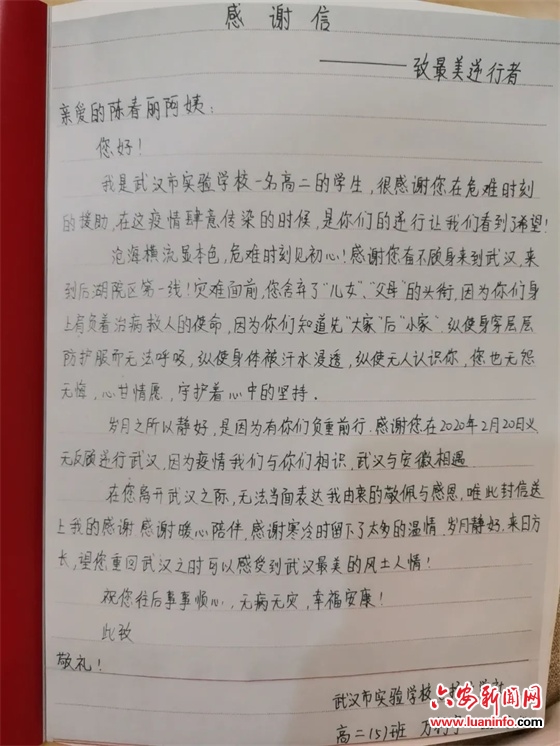 感谢信
——致最美逆行者
亲爱的陈春丽阿姨：
您好！
我是武汉市实验学校一名高二的学生，很感谢您在危难时刻
的援助，在这疫情肆意传染的时候，是你们的逆行让我们看到了希望！
沧海横流显本色，危难时刻见初心！感谢您奋不顾身来到武汉，来
到后湖院区第一线！灾难面前，您舍弃了“儿女”、“父母”的头衔，因为你们身
上有负着治病救人的使命，因为你们知道先“大家”后“小家”。纵使身穿层层
防护服而无法呼吸，纵使身体被汗水浸透，纵使无人认识你，您也无怨
无悔，心甘情愿，守护着心中的坚持。
岁月之所以静好，是因为有你们负重前行.感谢您在2020年2月20日义
无反顾逆行武汉，因为疫情我们与你们相识，武汉与安徽相遇
在您离开武汉之际，无法当面表达我由衷的敬佩与感恩，唯此封信送
上我的感谢 感谢暖心陪伴，感谢寒冷时留下了太多的温情.岁月静好，来日方
长，望您重回武汉之时可以感受到武汉最美的风土人情！
祝您往后事事顺心，无病无灾，幸福安康！
此致
敬礼！
武汉市实验学校
高二（5）班 万
六安新闻网
www.luaninfo.com